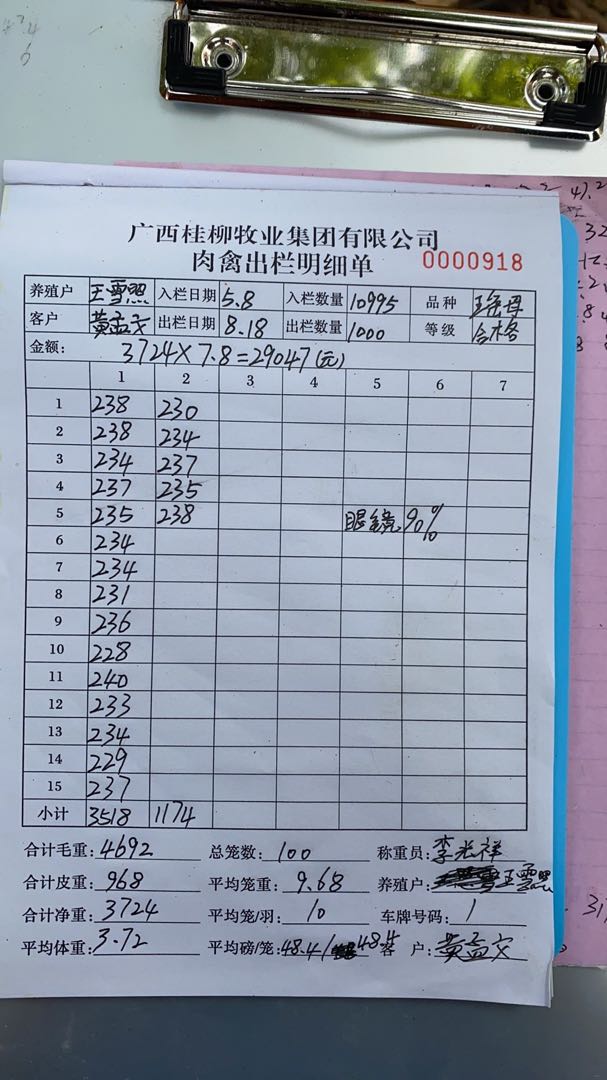 广西桂柳牧业集团有限公司
肉禽出栏明细单 0000918
养殖户 王雪照 入栏日期 5.8 入栏数量 10995 品种
客户 黄孟文 出栏日期 8.18 出栏数量 1000 等级 合格
金额: 3724×7.8=29047(元)
1 2 3 4 5 6 7
1 238 230
2 238 234
3 234 237
4 237 235
5 235 238 眼镜 90%
6 234
7 234
8 231
9 236
10 228
11 240
12 233
13 234
14 229
15 237
小计 3518 1174
合计毛重: 4692 总笼数: 100 称重员: 李光祥
合计皮重: 968 平均笼重: 9.68 养殖户: 王雪照
合计净重: 3724 平均笼/羽: 10 车牌号码: 1
平均体重: 3.72 平均磅/笼: 48.4/48.4 客 户: 黄孟文